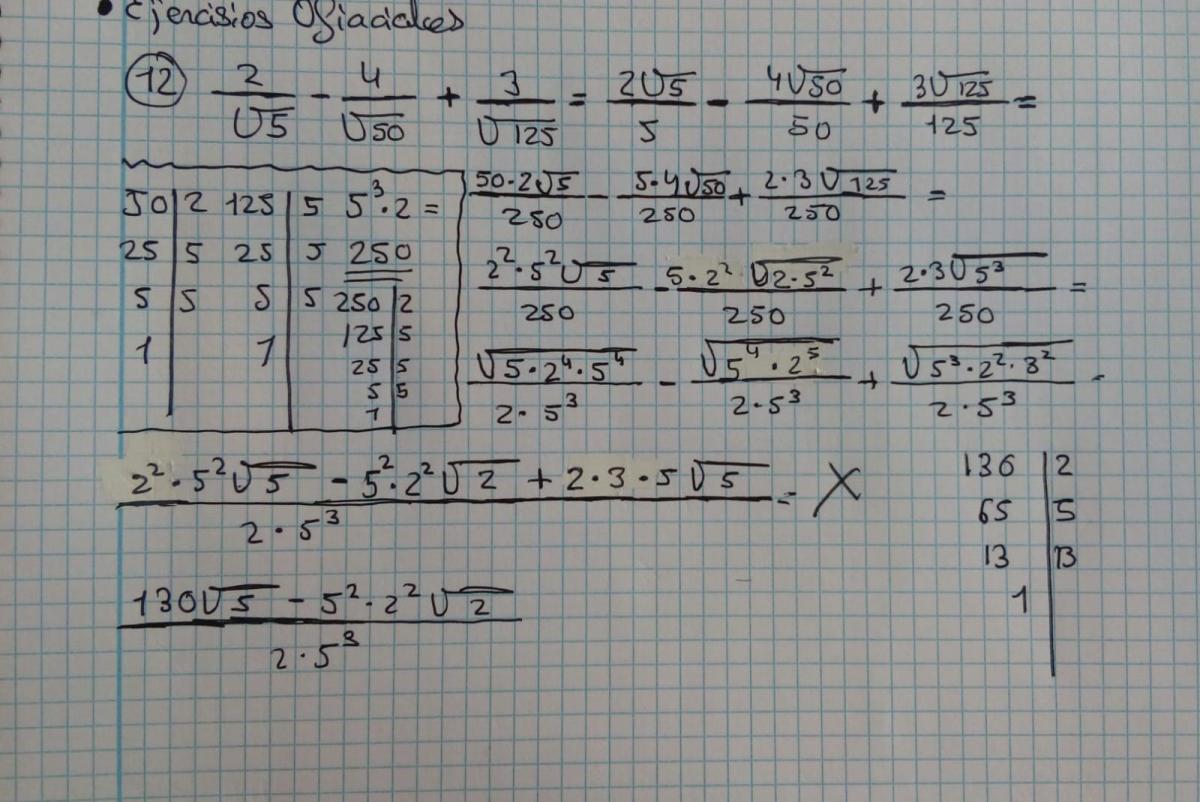 • Ejercisios Ofiaciales
12 2/√5 - 4/√50 + 3/√125 = 2√5/5 - 4√50/50 + 3√125/125 =
50 | 2 125 | 5 5³·2 =
25 | 5 25 | 5 250
5 | 5 5 | 5 250 | 2
1 1 125 | 5
25 | 5
5 | 5
1
50·2√5/250 - 5·4√50/250 + 2·3√125/250 =
2²·5²√5/250 - 5·2²·√2·5²/250 + 2·3√5³/250 =
√5·2⁴·5⁴/2·5³ - √5⁴·2⁵/2·5³ + √5³·2²·3²/2·5³ -
2²·5²√5 - 5²·2²√2 + 2·3·5√5/2·5³ = X
130√5 - 5²·2²√2/2·5³
130 | 2
65 | 5
13 | 13
1